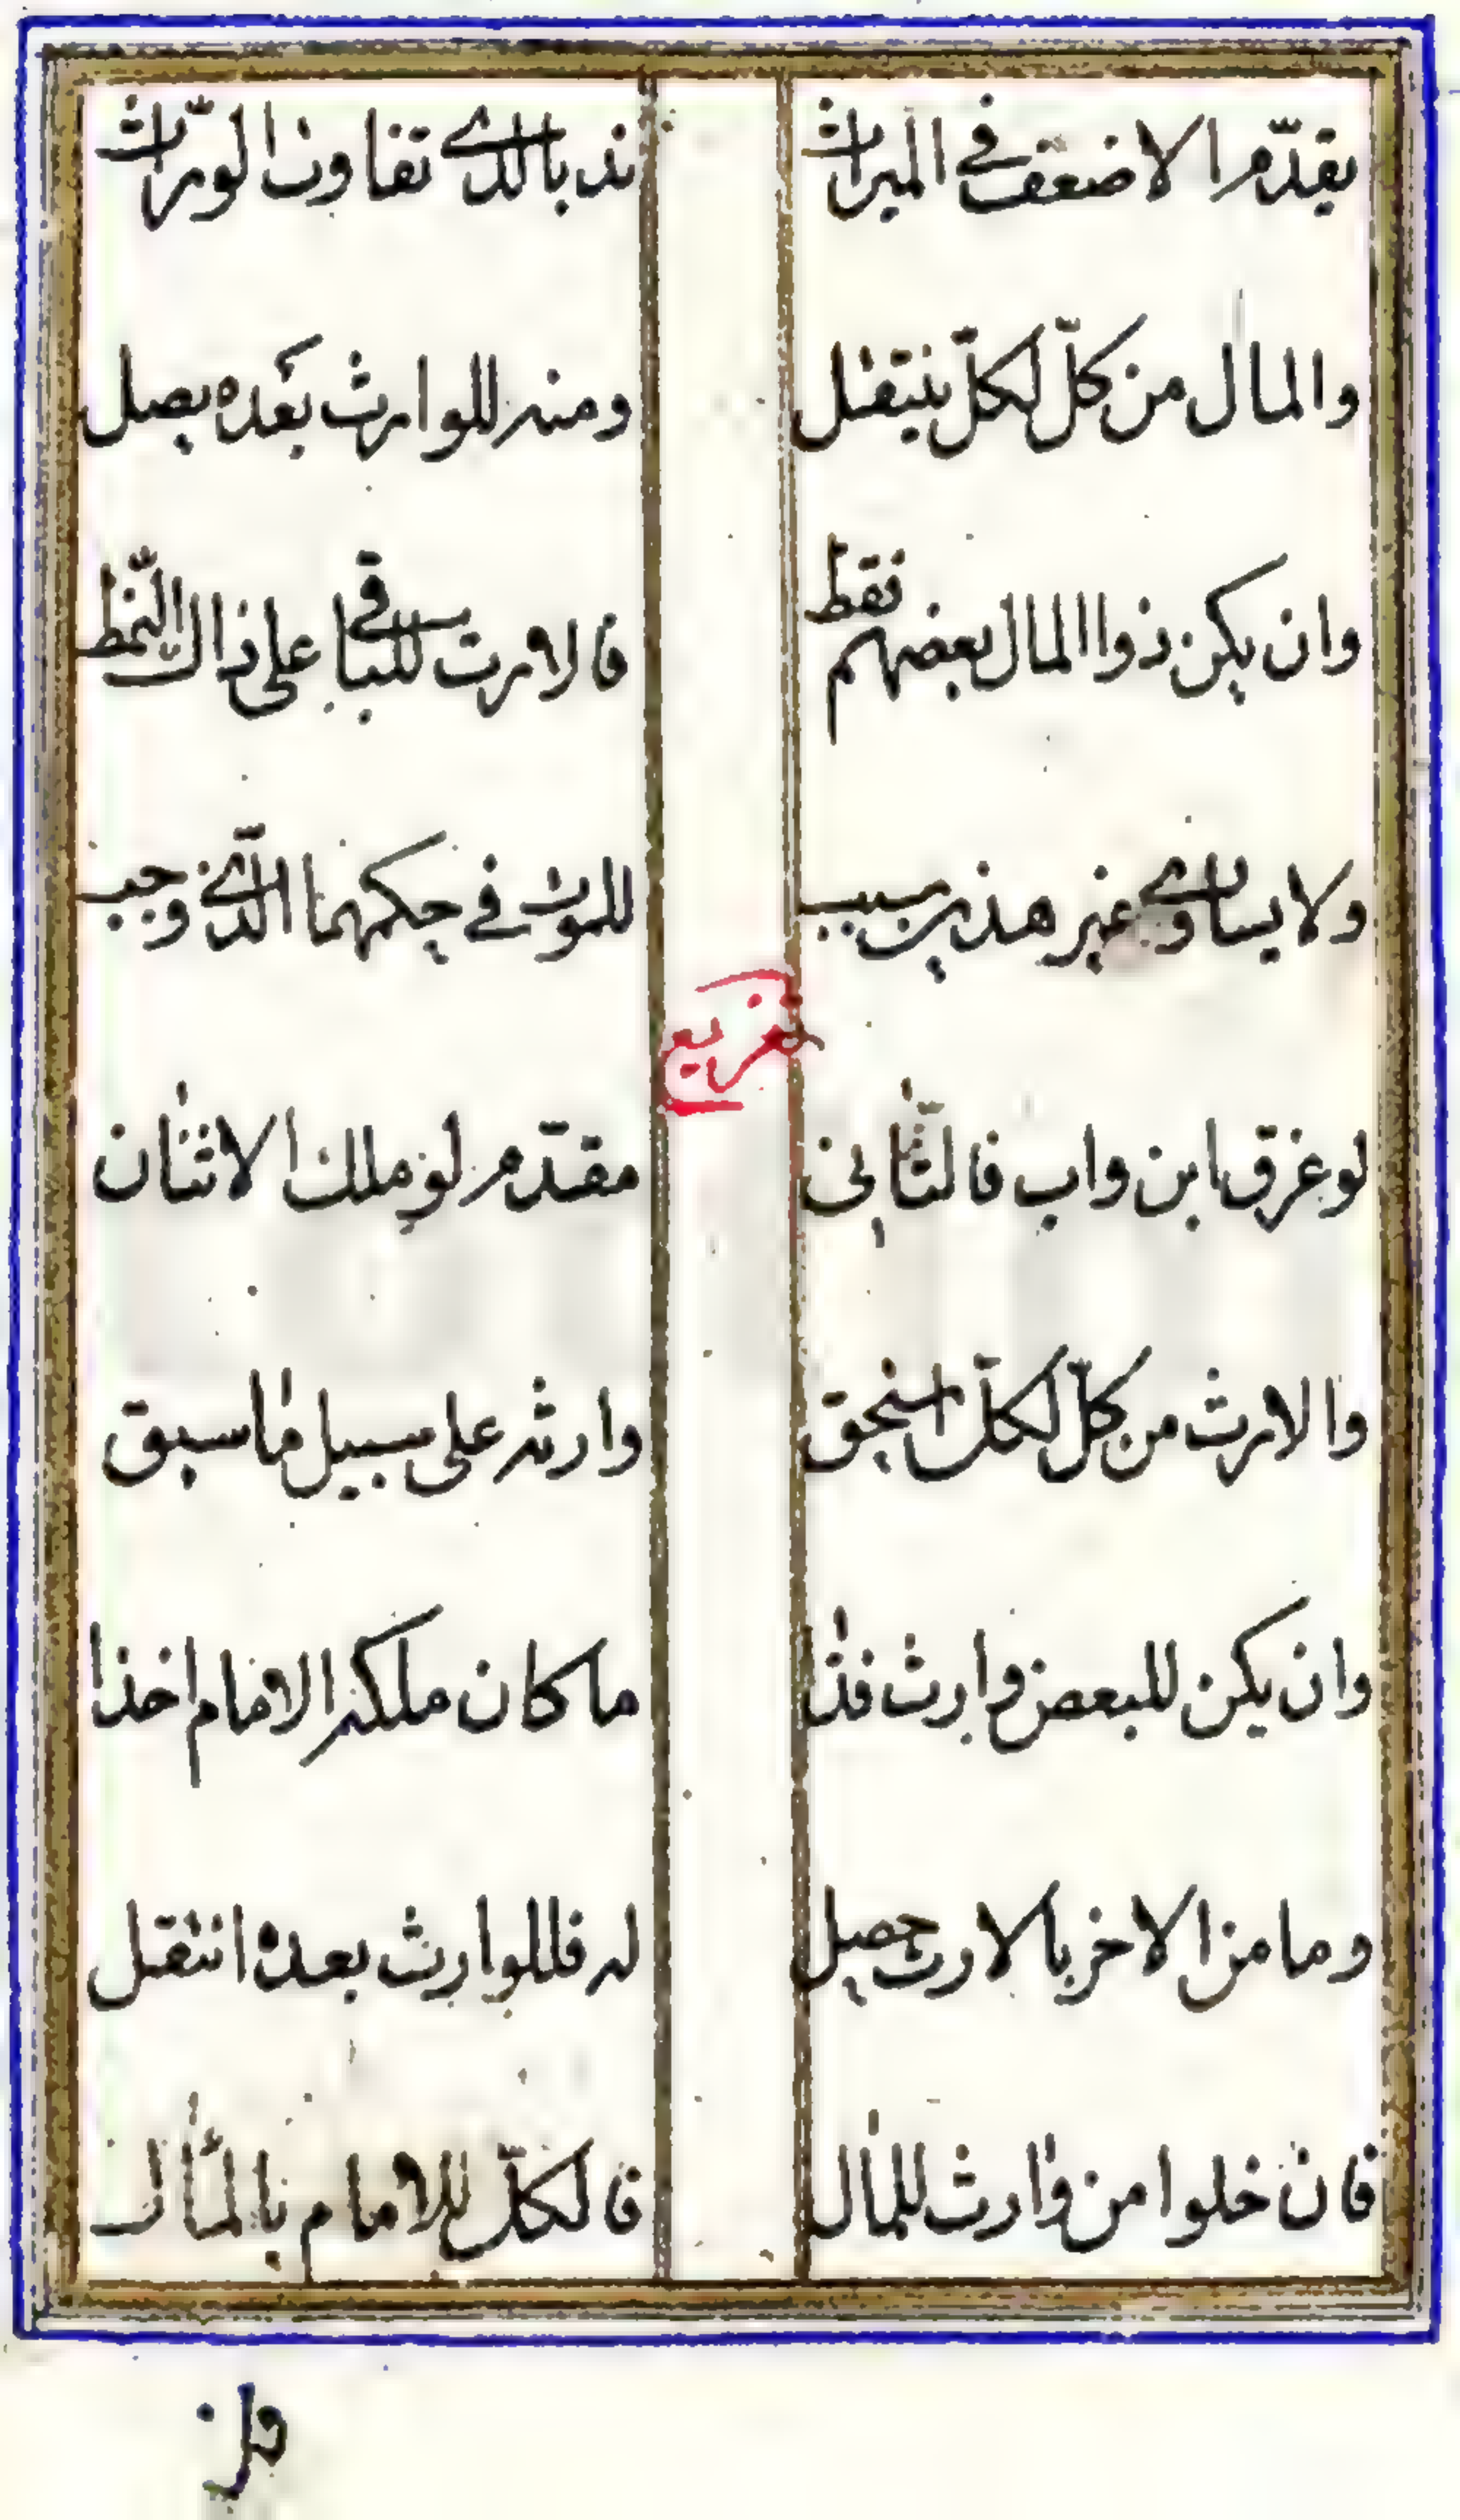 يقدّم الاضعف في الميراث ندبا لدى تفاوت الورّاث
والمال من كلّ لكلّ ينتقل ومنه للوارث بعده يصل
وان يكن ذوا المال بعضهم فقط فالارث للباقي على ذاك النّمط
ولا يساوي غير هذين سبب للموت في حكمهما الّذي وجب
تفريع
لو غرق ابن واب فالثّاني مقدّم لو ملك الاثنان
والارث من كلّ لكلّ استحق وارثه على سبيل ما سبق
وان يكن للبعض وارث فذا ما كان ملكه الامام اخذا
وما من الاخر بالارث حصل له فللوارث بعده انتقل
فان خلوا من وارث للمال فالكلّ للامام بالمأال